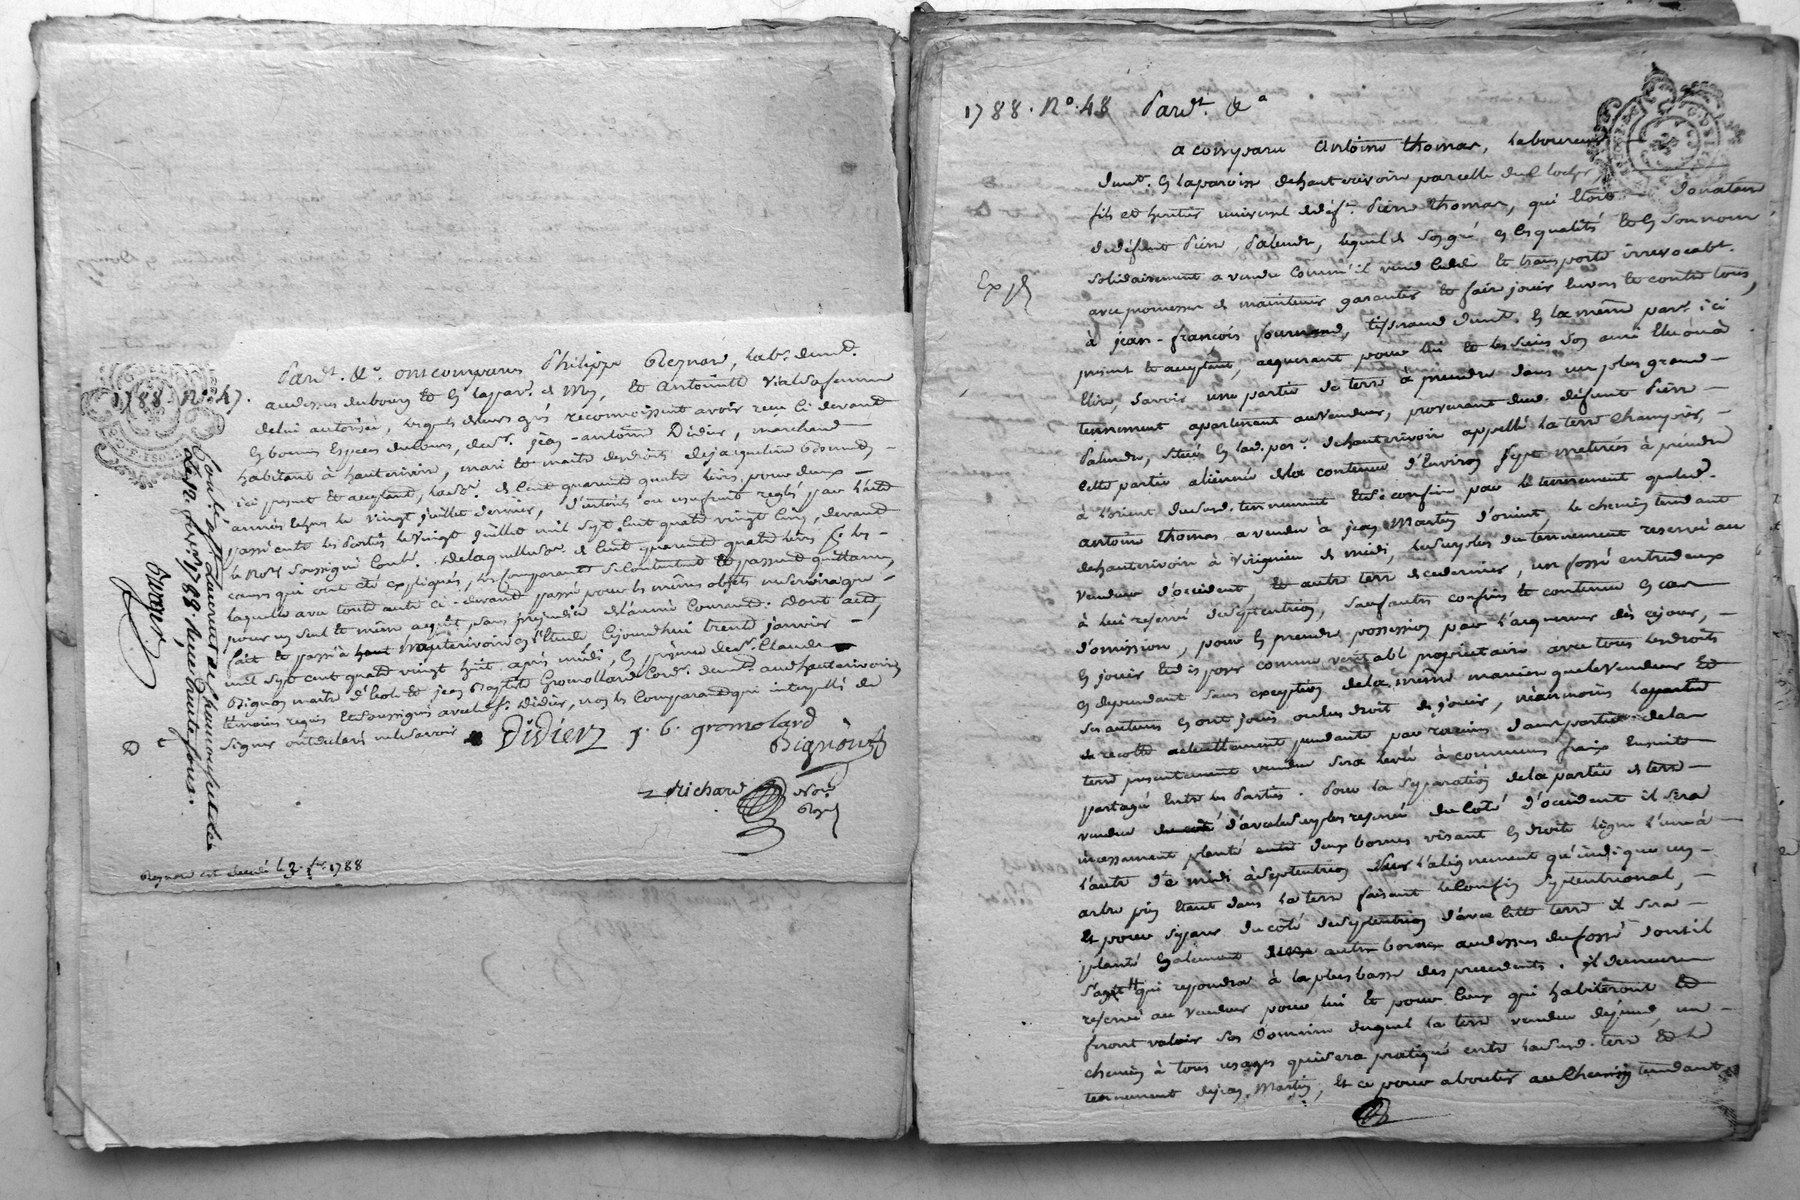 1788. N.° 47.
Pard.t &.a ont comparus Philippe Reynard, lab.r dem.t
audessus du bourg et en la par.e de
de lui autorisée, lesquels de leurs grés reconnoissent avoir recu ci devant
en bonnes Especes du Cours, de s.r jean-antoine Didier, marchand
habitant à hauterivoire, mari et maitre des droits de jacqueline
ici present et acceptant, la so.e de Cent quarente quatre livres, pour deux
années echues le vingt juillet dernier, d'interets ou usufruit reglés par l'acte
passé entre les Parties le vingt juillet mil sept Cent quatre vingt Cinq, devant
le No.re soussigné Contr.é. de laquelle so.e de Cent quarente quatre livres
causes qui ont été expliquées, les Comparants se Contentent et passent quittance,
laquelle avec toute autre ci-devant passée pour les mêmes objets ne servira que
pour un seul et même acquit sans prejudice de l'année Courante. Dont acte,
fait et passé à hauterivoire en l'Etude Cejourd'hui trente janvier
mil sept cent quatre vingt huit après midi, en presence de s.r Claude
Bignon maitre d'Ecole et jean Baptiste Gromollard Cord.r dem.t aud hauterivoire
temoins requis et soussignés avec led s.r Didier, non les Comparants qui interpellés de
signer ont declaré ne le savoir
Didier j. b. gromolard
Bignon
Richard No.re
Royal
Cont.é à St Laurent de Chamousset le
1788. Reçu trente sous.
Reynard est decedé le 3. 1788
1788. N.° 48 Pard.t &.a
Exp.é
a comparu Antoine thomas, laboureur
dem.t en la paroisse de hauterivoire parcelle
fils et heritier universel de def.t Pierre thomas, qui étoit donataire
de défunt Pierre Palendre, lequel de son gré en les qualités et en son nom
solidairement a vendu comme il vend Cede et transporte irrevocabl.t
avec promesse de maintenir garantir et faire jouir Envers et contre tous,
à jean-françois fournand, tisserand dem.t en la même par.e ici
present et acceptant, acquerant pour lui et les siens son ami Elu ou à
Elire, savoir une partie de terre à prendre dans un plus grand
tennement apartenant au vendeur, provenant dud. défunt Pierre
Palendre, située en lad. par.e de hauterivoire appellé la terre Champier,
Cette partie aliennée de la contenue d'Environ sept meterées à prendre
à l'orient dud. tennement et se confine par le tennement que led.
antoine thomas a vendu à jean Martin d'orient, le chemin tendant
de hauterivoire à Virignieu de midi, le surplus du tennement reservé au
vendeur d'occident, et autre terre de ce dernier, un fossé entredeux
à lui reservé de septentrion, sauf autres confins et contenue en cas
d'omission, pour en prendre possession par l'acquereur dès ce jour,
en jouir et disposer comme veritable proprietaire avec tous les droits
en dependant sans exception de la même maniere que le Vendeur et
ses auteurs en ont joui ou eu droit de jouir, néanmoins la partie
de recolte actuellement pendante par racines dans partie de la
terre presentement vendue sera levée à communs fraix Ensuite
partagée Entre les Parties. Pour la separation de la partie de terre
vendue d'avec le surplus reservé du Coté d'occident il sera
incessament planté entre deux bornes visant en droite ligne l'une à
l'autre de midi à septentrion l'alignement qu'indique un
arbre pin étant dans la terre faisant le confin septentrional,
et pour separer du côté de septentrion d'avec Cette terre il sera
planté Egalement autre bornes audessus du fossé dont il
s'agit qui repondra à la plus basse des precedentes. il demeure
reservé au vendeur pour lui et pour Ceux qui habiteront et
feront valoir son Domaine duquel la terre vendue depend, un
chemin à tous usages qui sera pratiqué entre lad. terre et le
tennement de jean Martin, et ce pour aboutir au Chemin tendant